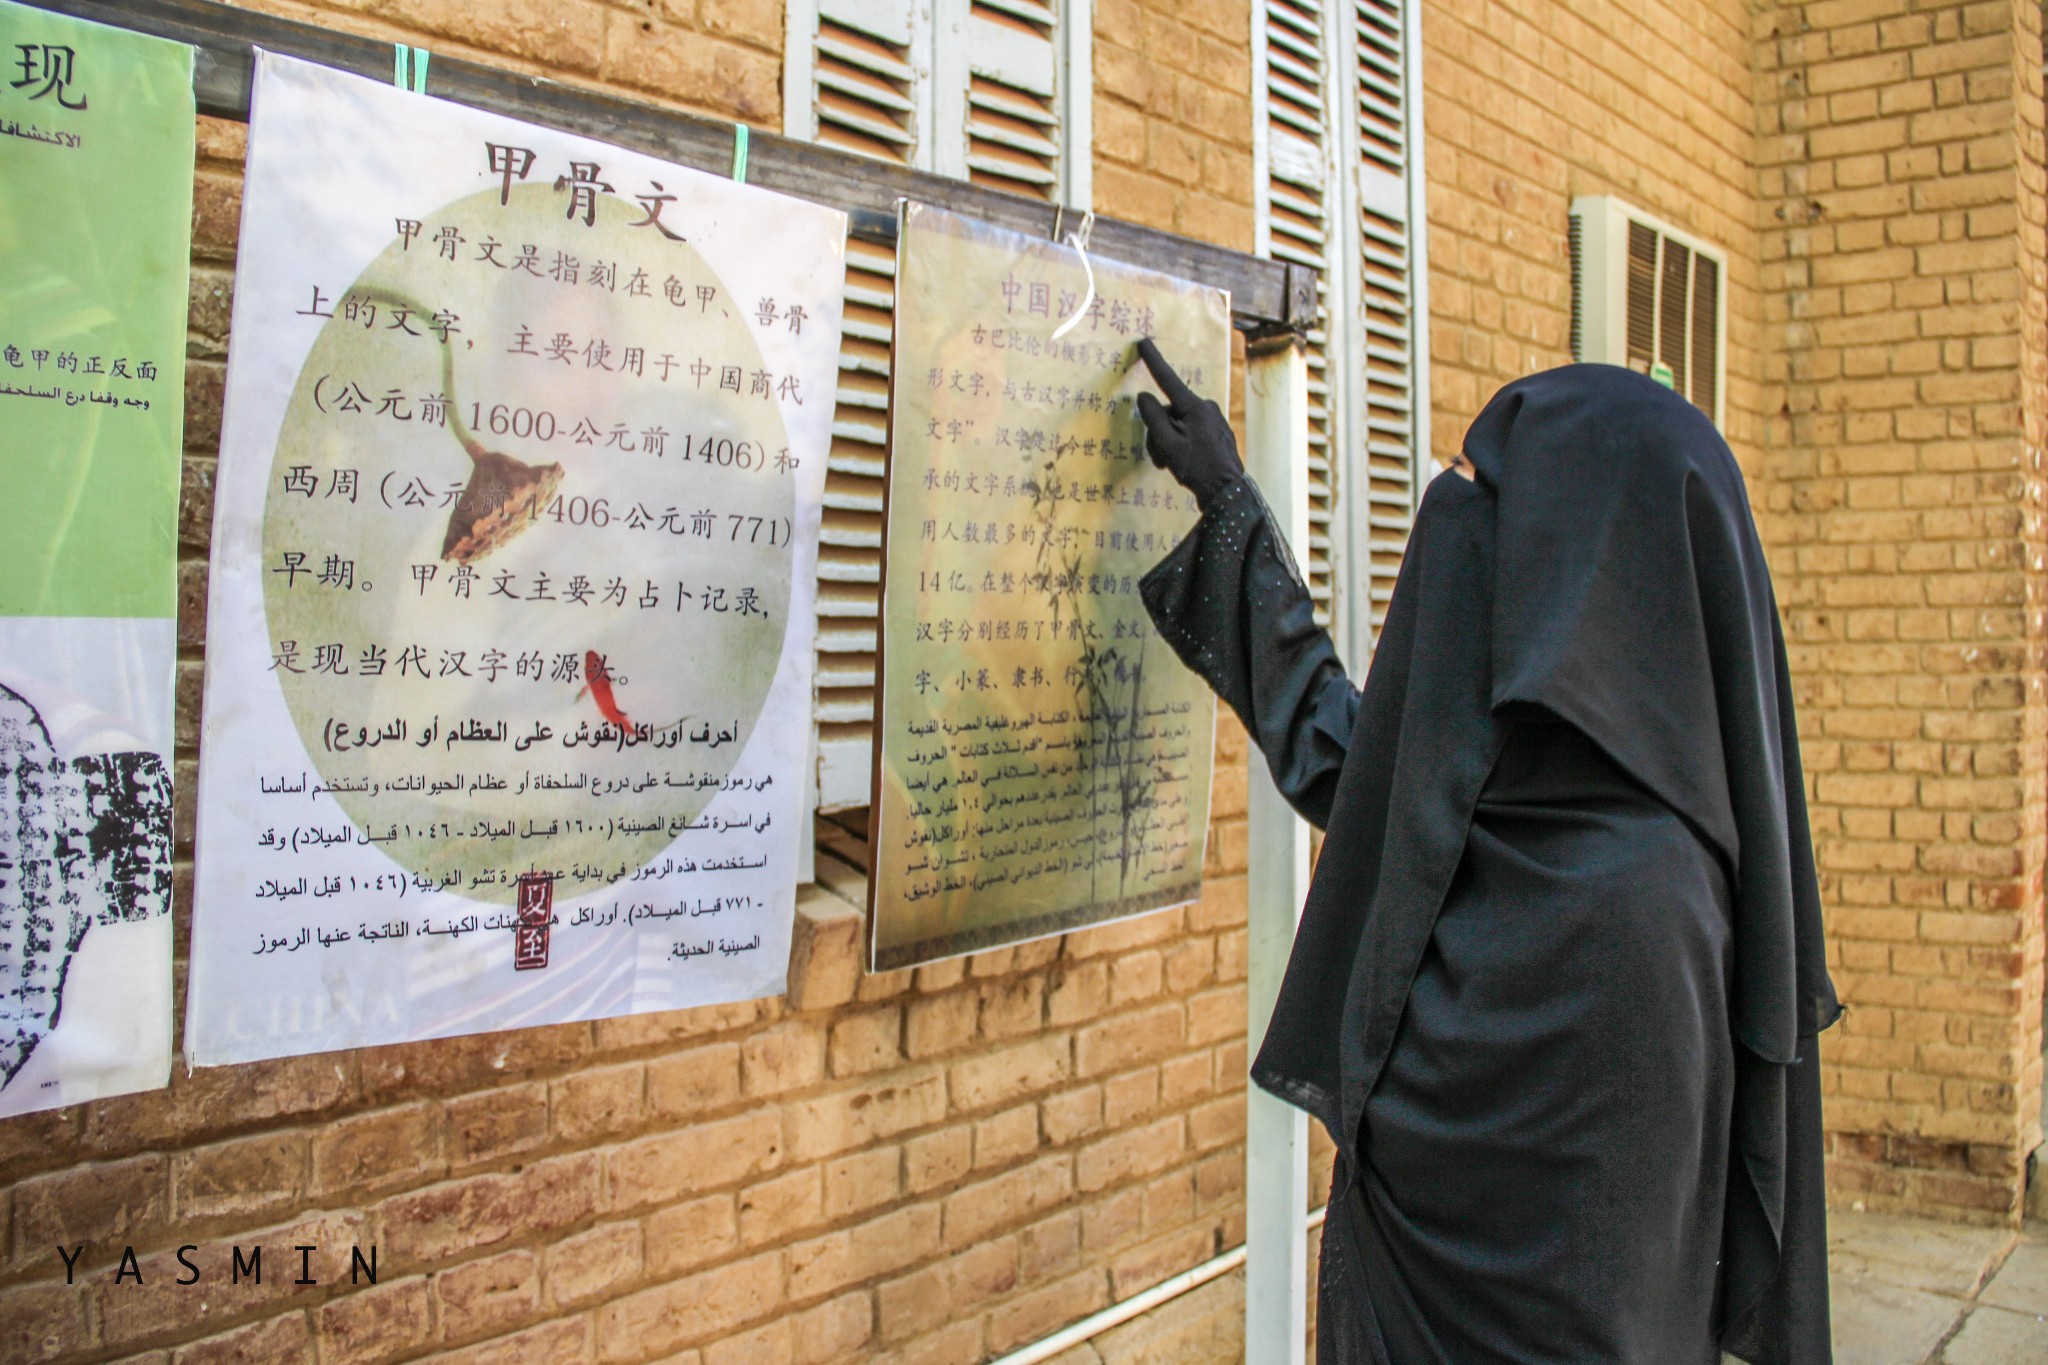 现
الاكتشافا
龟甲的正反面
وجه وقفا درع السلحفا
甲骨文
甲骨文是指刻在龟甲、兽骨
上的文字，主要使用于中国商代
（公元前 1600-公元前 1406）和
西周（公元前 1406-公元前 771）
早期。甲骨文主要为占卜记录，
是现当代汉字的源头。
أحرف أوراكل(نقوش على العظام أو الدروع)
هي رموز منقوشة على دروع السلحفاة أو عظام الحيوانات، وتستخدم أساسا
في اسرة شانغ الصينية (١٦٠٠ قبل الميلاد - ١٠٤٦ قبل الميلاد) وقد
استخدمت هذه الرموز في بداية عهد أسرة تشو الغربية (١٠٤٦ قبل الميلاد
- ٧٧١ قبل الميلاد). أوراكل هي كهنات الكهنة، الناتجة عنها الرموز
الصينية الحديثة.
夏至
CHINA
中国汉字综述
古巴比伦的楔形文字，的象
形文字，与古汉字并称为“
文字”。汉字是迄今世界上唯
承的文字系统，也是世界上最古老、使
用人数最多的文字，目前使用人
14 亿。在整个汉字演变的历
汉字分别经历了甲骨文、金文、
字、小篆、隶书、行书、楷书。
الكتابة الهيروغليفية المصرية القديمة
باسم "اقدم ثلاث كتابات" الحروف
من نفس السلالة في العالم. هي أيضا
العالم. يقدر عددهم بحوالي ١.٤ مليار حاليا.
الحروف الصينية بعدة مراحل منها: أوراكل(نقوش
رموز الدول المتحاربة، تشوان شو
(الخط الديواني الصيني)، الخط الوشيق،
YASMIN